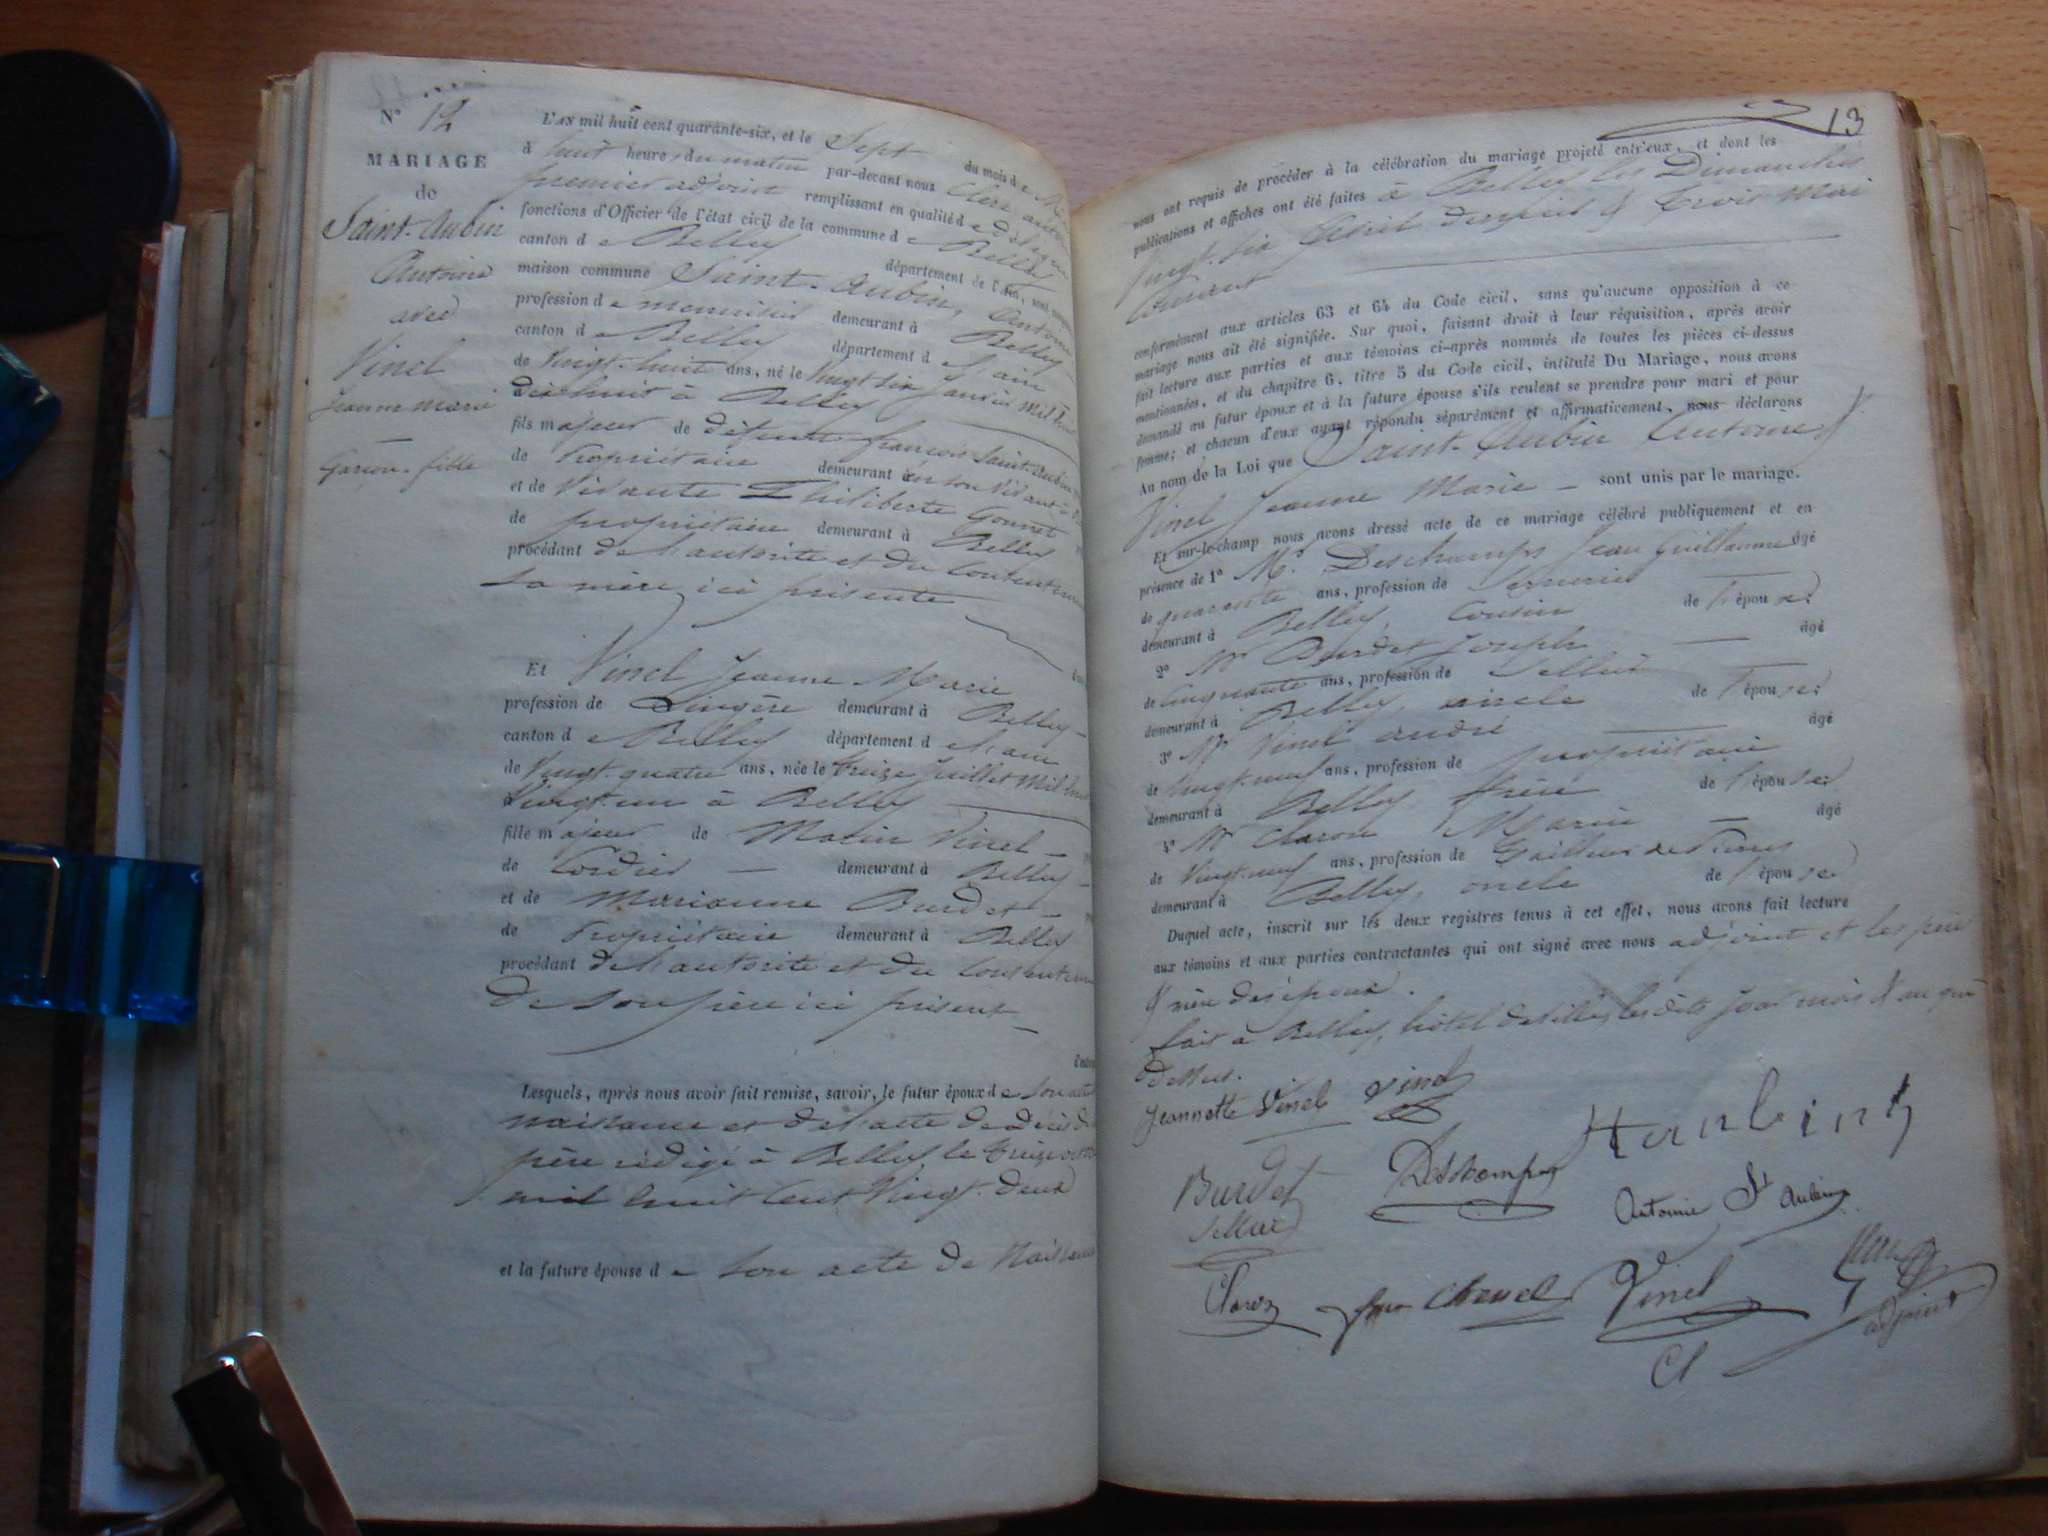 N° 12
MARIAGE
de
Saint-Aubin
Antoine
avec
Vinel
Jeanne Marie
Garçon - fille
L'AN mil huit cent quarante-six, et le Sept du mois de
à huit heures du matin par-devant nous
premier adjoint remplissant en qualité de délégué
fonctions d'Officier de l'état civil de la commune de Belley
canton de Belley département de l'Ain,
maison commune Saint-Aubin, Antoine
profession de menuisier demeurant à Belley
canton de Belley département de l'ain
de Vingt-huit ans, né le Vingt six Janvier Mil huit
dix huit à Belley
fils majeur de défunt françois Saint-Aubin
de Propriétaire demeurant en son Vivant à
et de Vivante Philiberte Gonnet
de propriétaire demeurant à Belley
procédant de l'autorité et du Consentement
Sa mère ici présente
Et Vinel Jeanne Marie
profession de Lingère demeurant à Belley
canton de Belley département de l'ain
de Vingt-quatre ans, née le treize Juillet Mil huit
Vingt-un à Belley
fille majeur de Matin Vinel
de Cordier demeurant à Belley
et de Marianne Burdet
de Propriétaire demeurant à Belley
procédant de l'autorité et du Consentement
De son père ici présent
Lesquels, après nous avoir fait remise, savoir, le futur époux de son acte
naissance et de l'acte de décès de
père rédigé à Belley le treize
mil huit Cent Vingt-deux
et la future épouse de son acte de Naissance
13
nous ont requis de procéder à la célébration du mariage projeté entr'eux, et dont les
publications et affiches ont été faites à Belley les Dimanches
Vingt-six Avril dernier & trois Mai
Courant
conformément aux articles 63 et 64 du Code civil, sans qu'aucune opposition à ce
mariage nous ait été signifiée. Sur quoi, faisant droit à leur réquisition, après avoir
fait lecture aux parties et aux témoins ci-après nommés de toutes les pièces ci-dessus
mentionnées, et du chapitre 6, titre 5 du Code civil, intitulé Du Mariage, nous avons
demandé au futur époux et à la future épouse s'ils veulent se prendre pour mari et pour
femme; et chacun d'eux ayant répondu séparément et affirmativement, nous déclarons
Au nom de la Loi que Saint-Aubin Antoine &
Vinel Jeanne Marie sont unis par le mariage.
Et sur-le-champ nous avons dressé acte de ce mariage célébré publiquement et en
présence de 1° Mr Deschamps Jean Guillaume âgé
de quarante ans, profession de Serrurier
demeurant à Belley, Cousin de l'épouse
2° Mr Burdet Joseph âgé
de Cinquante ans, profession de Sellier
demeurant à Belley, oncle de l'épouse
3° Mr Vinel andré âgé
de Vingt-neuf ans, profession de propriétaire
demeurant à Belley, frère de l'épouse
4° Mr Claron Marin âgé
de Vingt-neuf ans, profession de Tailleur de Pierres
demeurant à Belley, oncle de l'épouse
Duquel acte, inscrit sur les deux registres tenus à cet effet, nous avons fait lecture
aux témoins et aux parties contractantes qui ont signé avec nous adjoint et les père
& mère des époux.
fait à Belley, hôtel de Ville, les dits jour mois & an que
dessus.
Jeannette Vinel Vinel
Burdet Deschamps
Sellier Antoine St Aubin
Vinel
adjoint